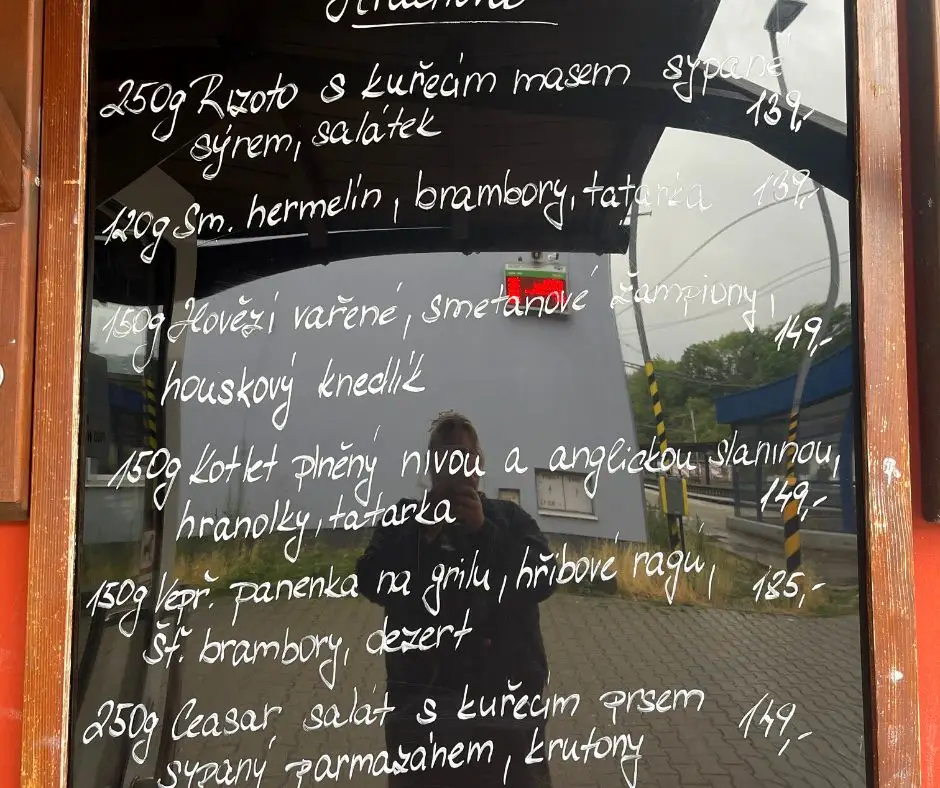 250g Rizoto s kuřecím masem sypané
sýrem, salátek 139,-
120g Sm. hermelín, brambory, tatarka 139,-
150g Hovězí vařené, smetanové žampiony,
149,-
houskový knedlík
150g Kotlet plněný nivou a anglickou slaninou,
hranolky, tatarka 149,-
150g Vepř. panenka na grilu, hříbové ragú, 185,-
Šť. brambory, dezert
250g Ceasar salát s kuřecím prsem 149,-
sypaný parmazánem, krutony